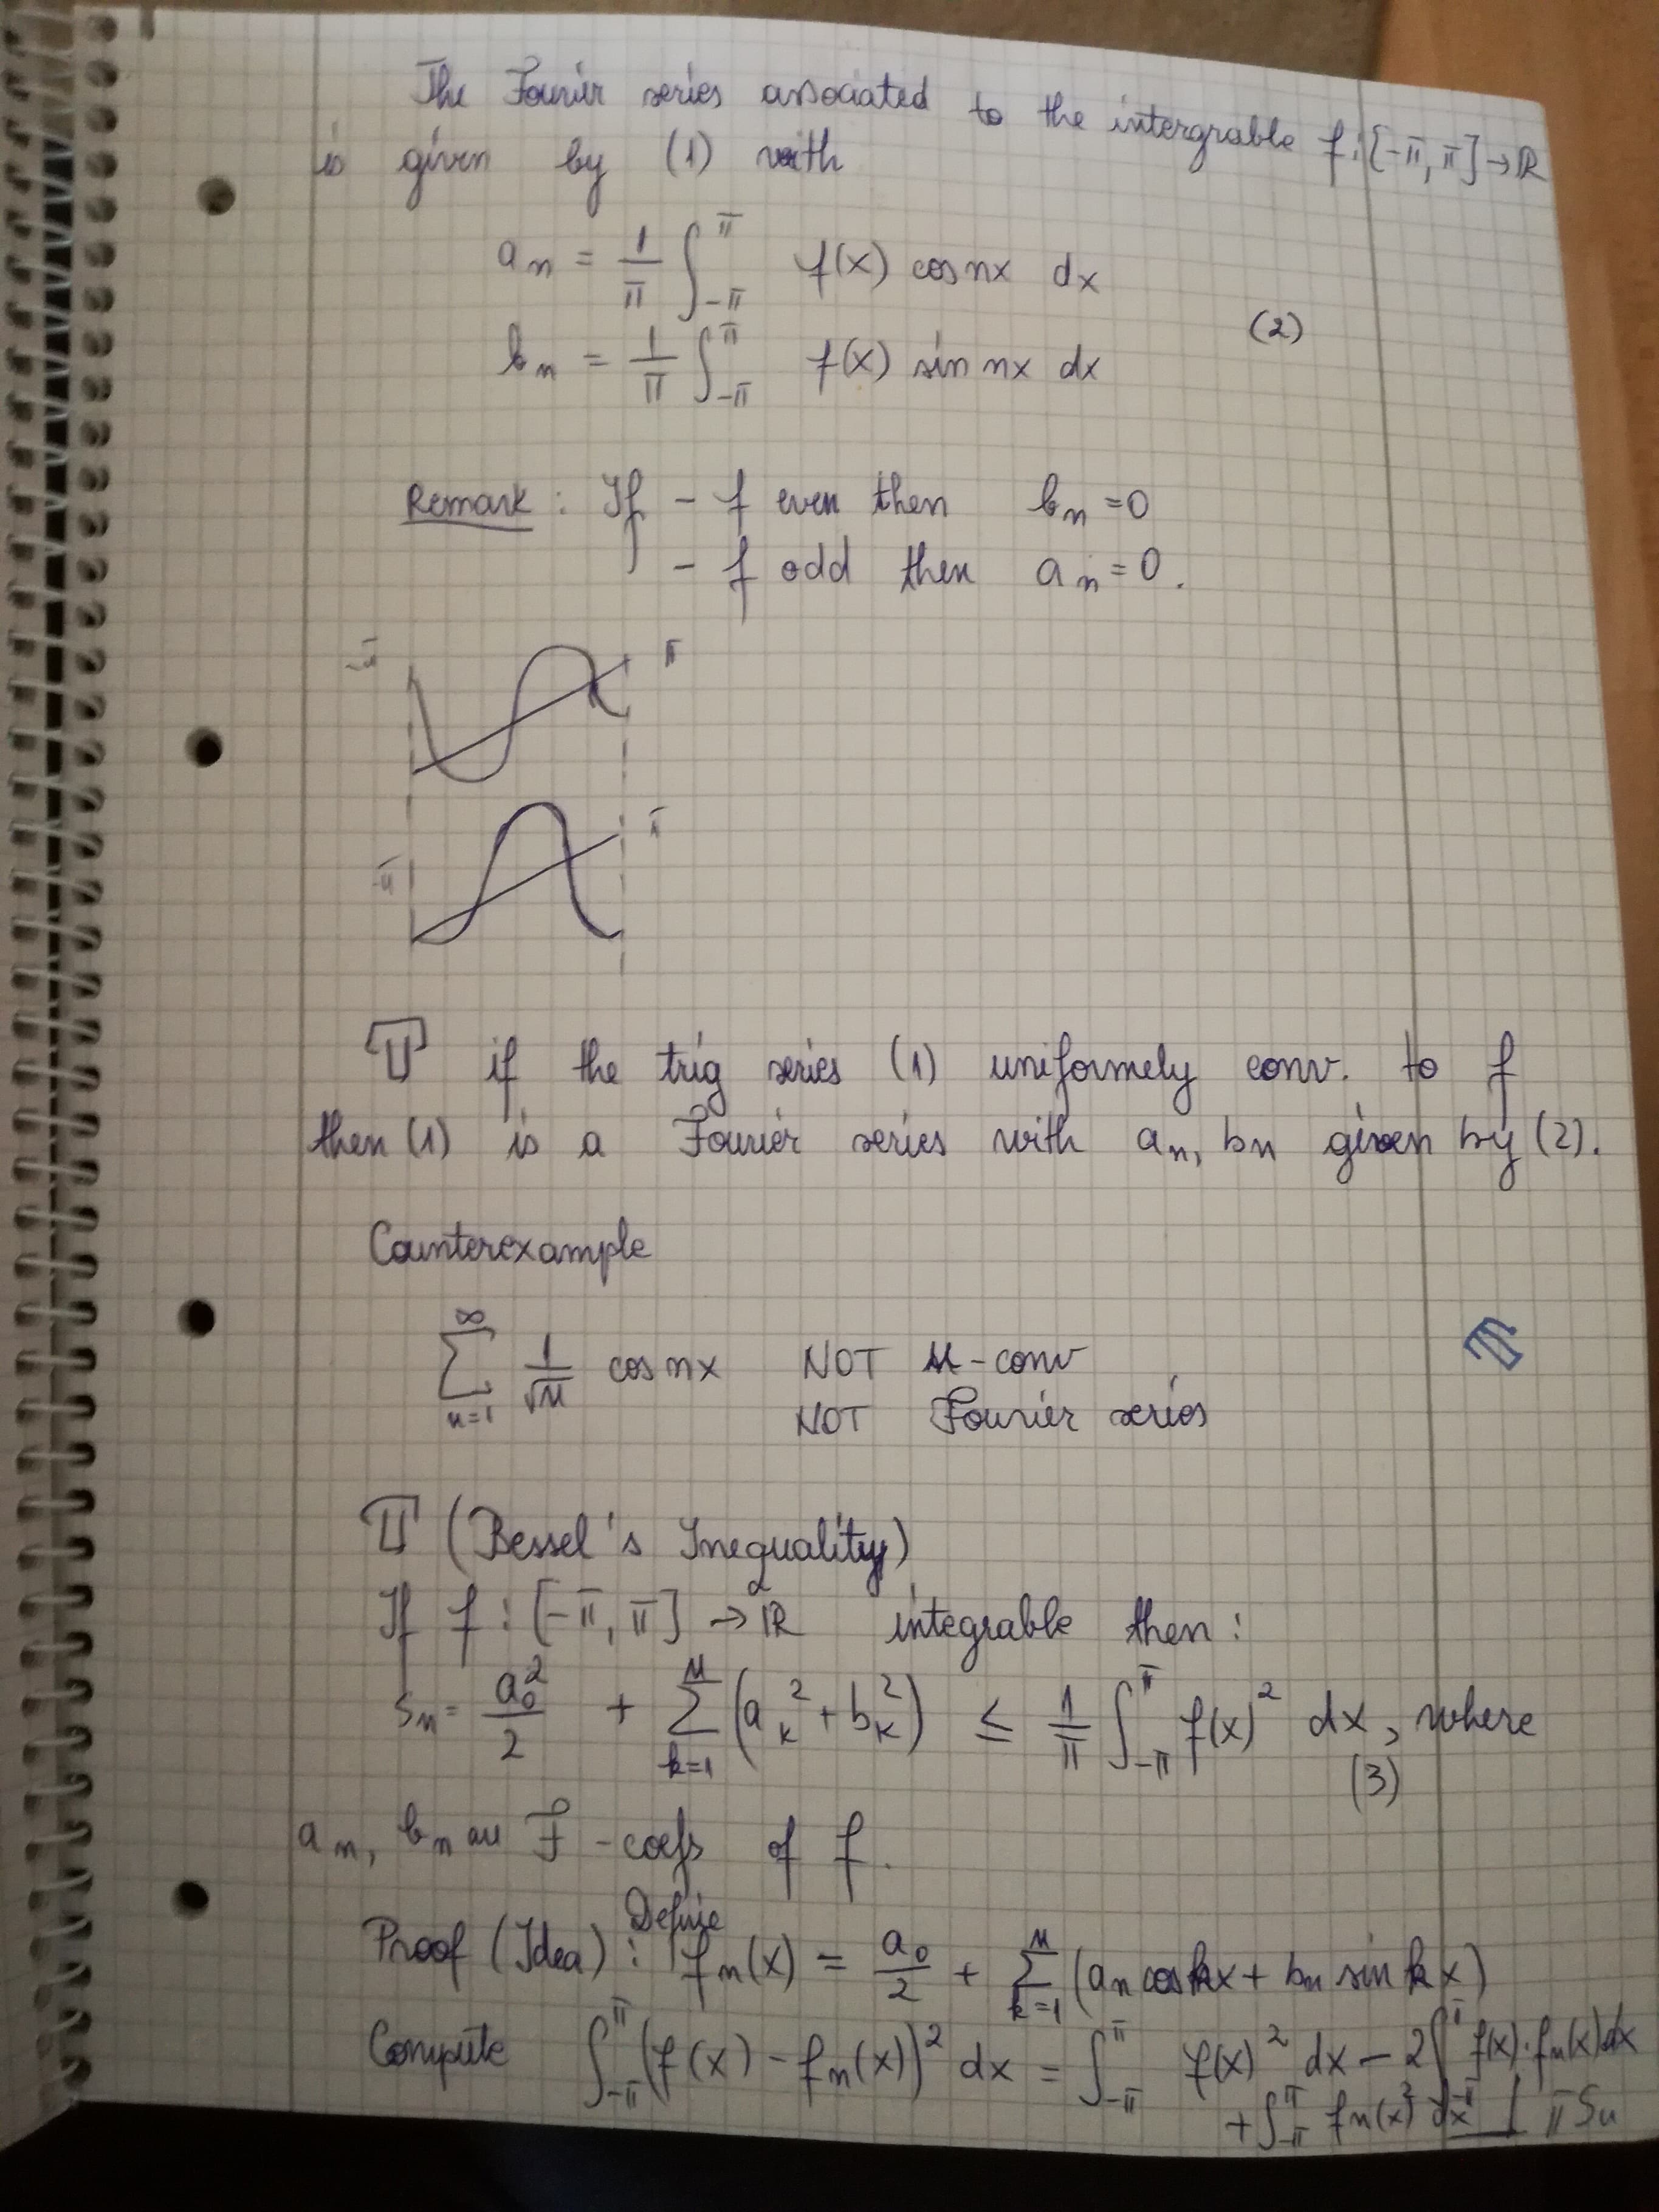 The Fourier series associated to the intergrable f: [-π, π] → ℝ
is given by (1) with
a_n = 1/π ∫_{-π}^{π} f(x) cos nx dx
(2)
b_n = 1/π ∫_{-π}^{π} f(x) sin nx dx
Remark: If - f even then b_n = 0
- f odd then a_n = 0.
-π π
-π π
T if the trig series (1) uniformely conv. to f
then (1) is a Fourier series with a_n, b_n given by (2).
Counterexample
∑_{n=1}^{∞} 1/√n cos nx NOT u-conv
NOT Fourier series
T (Bessel's Inequality)
If f: [-π, π] → ℝ integrable then:
S_n = a_0^2/2 + ∑_{k=1}^{n} (a_k^2 + b_k^2) ≤ 1/π ∫_{-π}^{π} f(x)^2 dx, where
(3)
a_n, b_n are F-coefs of f.
Proof (Idea): Define f_n(x) = a_0/2 + ∑_{k=1}^{n} (a_n cos kx + b_n sin kx)
Compute ∫_{-π}^{π} (f(x) - f_n(x))^2 dx = ∫_{-π}^{π} f(x)^2 dx - 2∫_{-π}^{π} f(x)·f_n(x)dx
+ ∫_{-π}^{π} f_n(x)^2 dx π S_n